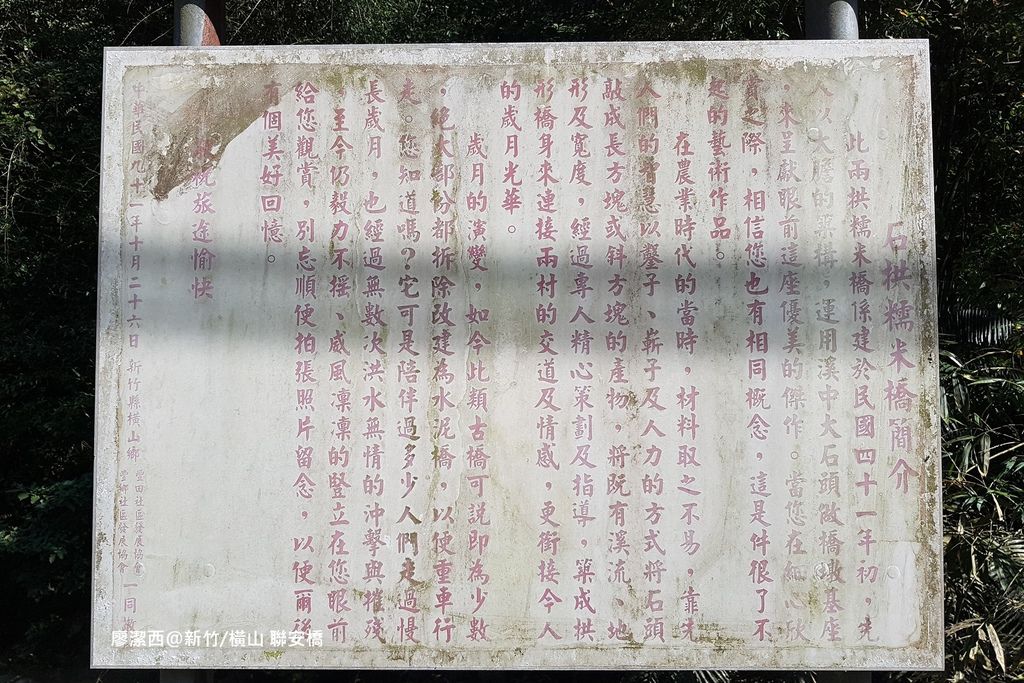 石栱糯米橋簡介
此兩栱糯米橋係建於民國四十一年初，先
人以大膽的築構，運用溪中大石頭做橋墩基座
，來呈獻眼前這座優美的傑作。當您在細心欣
賞之際，相信您也有相同概念，這是件很了不
起的藝術作品。
在農業時代的當時，材料取之不易，靠先
人們的智慧以鑿子、嶄子及人力的方式將石頭
敲成長方塊或斜方塊的產物，將既有溪流、地
形及寬度，經過專人精心策劃及指導，築成拱
形橋身來連接兩村的交道及情感，更銜接今人
的歲月光華。
歲月的演變，如今此類古橋可説即為少數
，絕大部份都拆除改建為水泥橋，以便重車行
走。您知道嗎？它可是陪伴過多少人們走過慢
長歲月，也經過無數次洪水無情的沖擊與摧殘
，至今仍毅力不搖、威風凜凜的豎立在您眼前
給您觀賞，別忘順便拍張照片留念，以便爾後
有個美好回憶。
祝旅途愉快
中華民國九十一年十月二十六日 新竹縣橫山鄉 豐田社區發展協會 豐鄉社區發展協會 一同敬
廖潔西@新竹/橫山 聯安橋